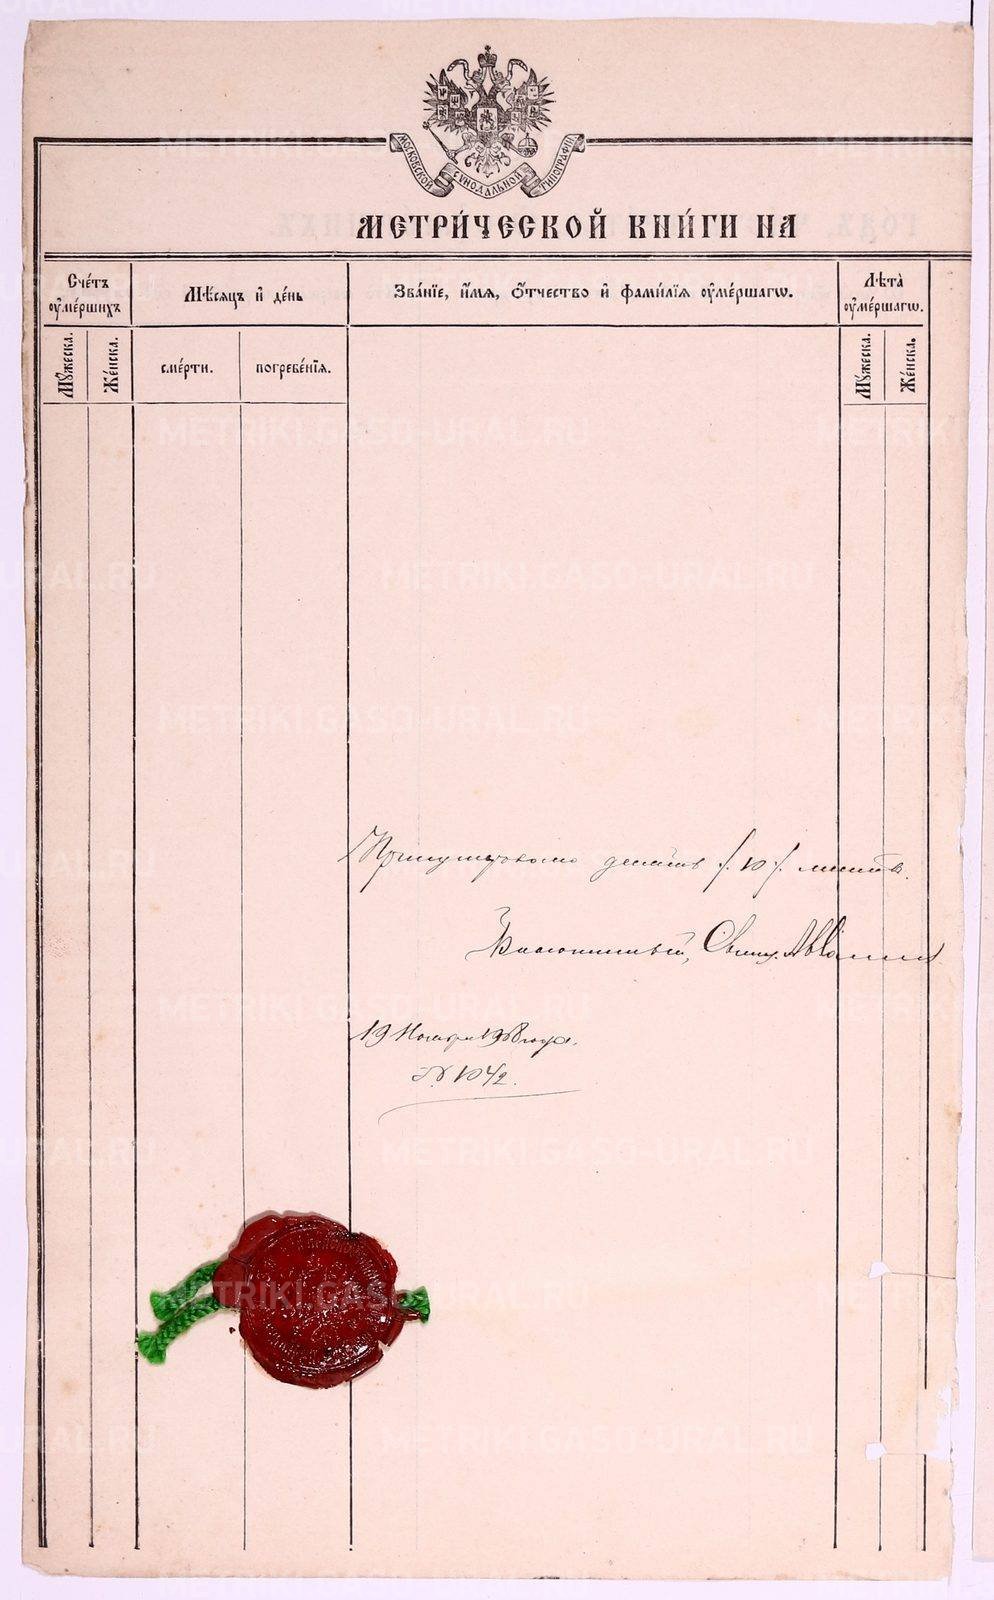 МОСКОВСКОЙ СѴНОДАЛЬНОЙ ТИПОГРАФІИ
МЕТРИ́ЧЕСКОЙ КНИ́ГИ НА
Сче́тъ ᲂу҆ме́ршихъ
Мѣ́сяцъ и҆ де́нь
Зва́нїе, и҆́мя, ѻ҆́тчество и҆ фами́лїя ᲂу҆ме́ршагѡ.
Лѣта̀ ᲂу҆ме́ршагѡ.
Мꙋ́жеска.
Же́нска.
сме́рти.
погребе́нїя.
Мꙋ́жеска.
Же́нска.
десять /.10/. листовъ.
Благочинный, Свящ.
19 Ноября 1908 года.
№ 1042.
METRIKI.GASO-URAL.RU